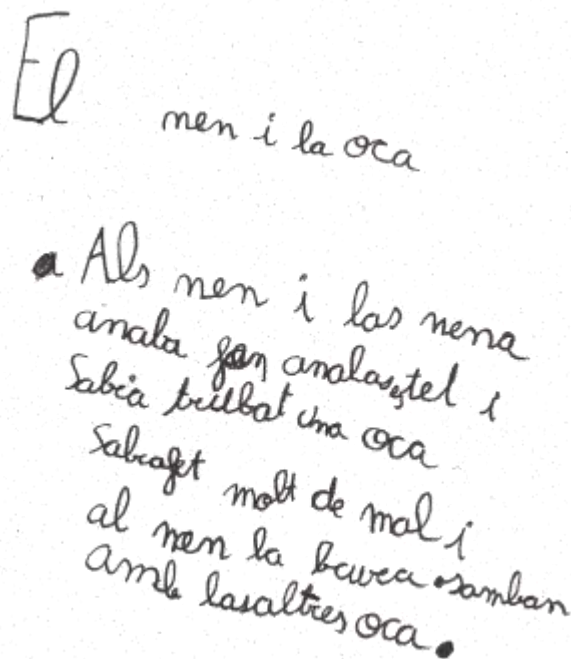 El nen i la oca
Als nen i las nena
anaba fen analas tel i
Sabia trubat una oca
Sabiafet molt de mal i
al nen la bawea samban
amb lasaltres oca.